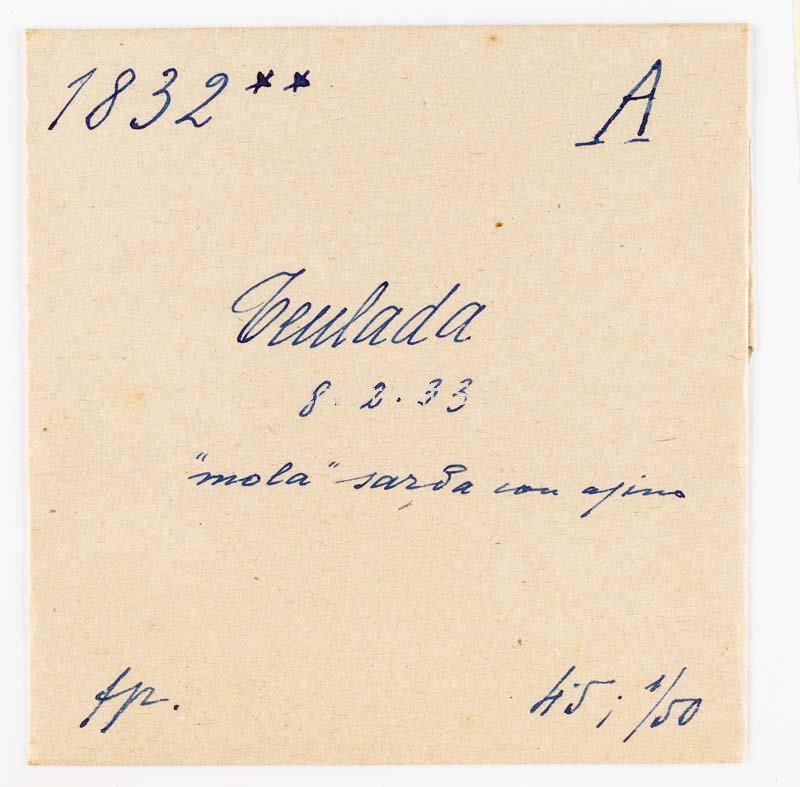 1832** A
Teulada
8.2.33
"mola" sarda con asino
fp.
45; 1/50